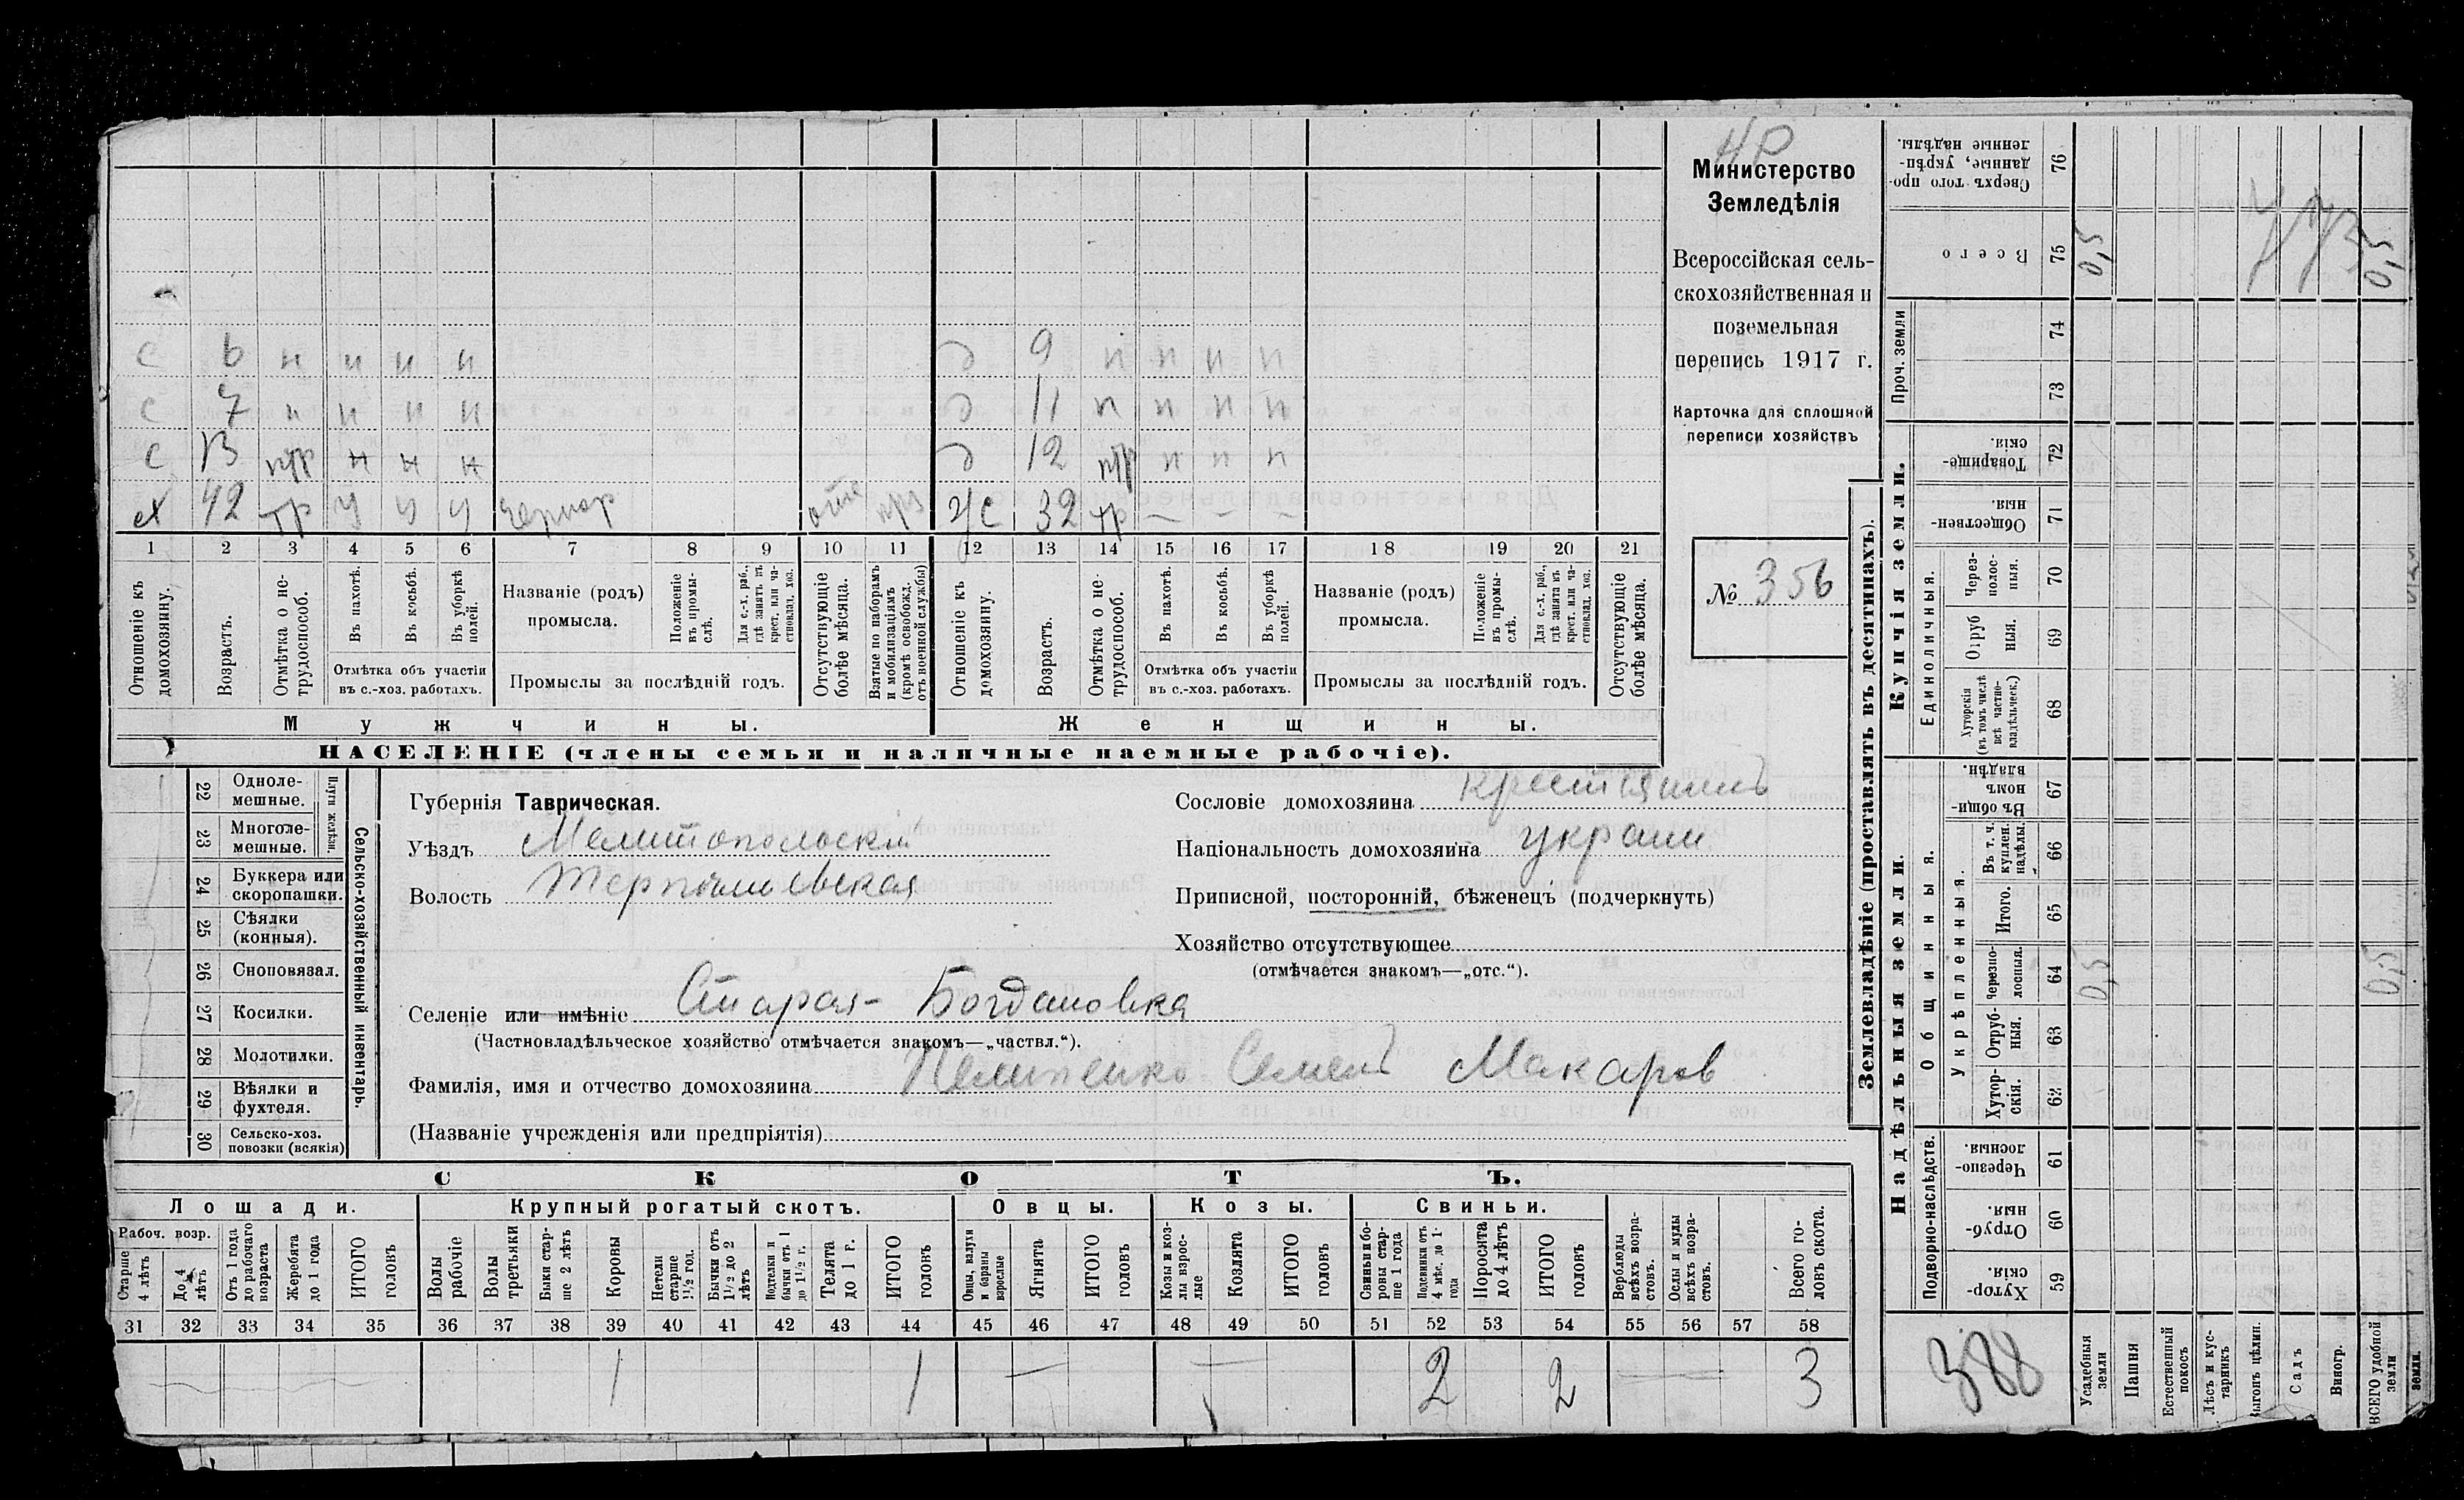 НР
Министерство
Земледѣлія
Всероссійская сель-
скохозяйственная и
поземельная
перепись 1917 г.
Карточка для сплошной
переписи хозяйствъ
№ 356
с 6 н н н н
д 9 н н н н
с 7 н н н н
д 11 н н н н
с 13 птр н н н
д 12 птр н н н
х 42 тр у у у
ж 32 тр — — —
1 2 3 4 5 6 7 8 9 10 11 12 13 14 15 16 17 18 19 20 21
Отношеніе къ домохозяину.
Возрастъ.
Отмѣтка о не-трудоспособ.
Въ пахотѣ.
Въ косьбѣ.
Въ уборкѣ полей.
Отмѣтка объ участіи
въ с.-хоз. работахъ.
Названіе (родъ)
промысла.
Положеніе въ промы-слѣ.
Для с.-х. раб., гдѣ занятъ въ крест. или ча-стновлад. хоз.
Промыслы за послѣдній годъ.
Отсутствующіе болѣе мѣсяца.
Взятые по наборамъ и мобилизаціямъ (кромѣ освобожд. отъ военной службы)
Отношеніе къ домохозяину.
Возрастъ.
Отмѣтка о не-трудоспособ.
Въ пахотѣ.
Въ косьбѣ.
Въ уборкѣ полей.
Отмѣтка объ участіи
въ с.-хоз. работахъ.
Названіе (родъ)
промысла.
Положеніе въ промы-слѣ.
Для с.-х. раб., гдѣ занята въ крест. или ча-стновлад. хоз.
Промыслы за послѣдній годъ.
Отсутствующіе болѣе мѣсяца.
Мужчины.
Женщины.
НАСЕЛЕНІЕ (члены семьи и наличные наемные рабочіе).
Сельско-хозяйственный инвентарь.
Плуги желѣзн.
22 Одноле-мешные.
23 Многоле-мешные.
24 Буккера или скоропашки.
25 Сѣялки (конныя).
26 Сноповязал.
27 Косилки.
28 Молотилки.
29 Вѣялки и фухтеля.
30 Сельско-хоз. повозки (всякія)
Губернія Таврическая.
Уѣздъ Мелитопольскій
Волость Терпѣньевская
Сословіе домохозяина крестьянинъ
Національность домохозяина украин
Приписной, посторонній, бѣженецъ (подчеркнуть)
Хозяйство отсутствующее
(отмѣчается знакомъ—„отс.“).
Селеніе или имѣніе Старая-Богдановка
(Частновладѣльческое хозяйство отмѣчается знакомъ—„частвл.“).
Фамилія, имя и отчество домохозяина Пелипенко Семенъ Макаров
(Названіе учрежденія или предпріятія)
СКОТЪ.
Лошади. Крупный рогатый скотъ. Овцы. Козы. Свиньи.
Рабоч. возр.
Старше 4 лѣтъ
До 4 лѣтъ
Отъ 1 года до рабочаго возраста
Жеребята до 1 года
ИТОГО головъ
Волы рабочіе
Волы третьяки
Быки стар-ше 2 лѣтъ
Коровы
Нетели старше 1½ год.
Бычки отъ 1½ до 2 лѣтъ
Подтелки и бычки отъ 1 до 1½ г.
Телята до 1 г.
ИТОГО головъ
Овцы, валухи и бараны взрослые
Ягнята
ИТОГО головъ
Козы и коз-лы взрос-лые
Козлята
ИТОГО головъ
Свиньи и бо-ровы стар-ше 1 года
Подсвинки отъ 4 мѣс. до 1-года
Поросята до 4 лѣтъ
ИТОГО головъ
Верблюды всѣхъ возра-стовъ.
Ослы и мулы всѣхъ возра-стовъ.
Всего го-ловъ скота.
31 32 33 34 35 36 37 38 39 40 41 42 43 44 45 46 47 48 49 50 51 52 53 54 55 56 57 58
1 1 — — 2 2 — 3
Землевладѣніе (проставлять въ десятинахъ).
Купчія земли.
Надѣльныя земли.
Сверхъ того про-данные, укрѣп-ленные надѣлы. 76
Всего 75
Проч. земли 74
73
Товарище-скія. 72
Обществен-ныя. 71
Единоличныя.
Через-полос-ныя. 70
Отруб ныя. 69
Хуторскія (въ томъ числѣ всѣ частно-владѣльческ.) 68
Въ общи-номъ владѣн. 67
Общинныя.
Укрѣпленныя.
Въ т. ч. куплен. надѣлы. 66
Итого. 65
Черезпо-лосныя. 64
Отруб-ныя. 63
Хутор-скія. 62
Подворно-наслѣдств.
Черезпо-лосныя. 61
Отруб-ныя. 60
Хутор-скія. 59
0,5
0,5
0,5
0,5
388
Усадебныя земли
Пашня
Естественный покосъ
Лѣсъ и кус-тарникъ
Выгонъ цѣлин.
Садъ
Виногр.
ВСЕГО удобной земли
земли.